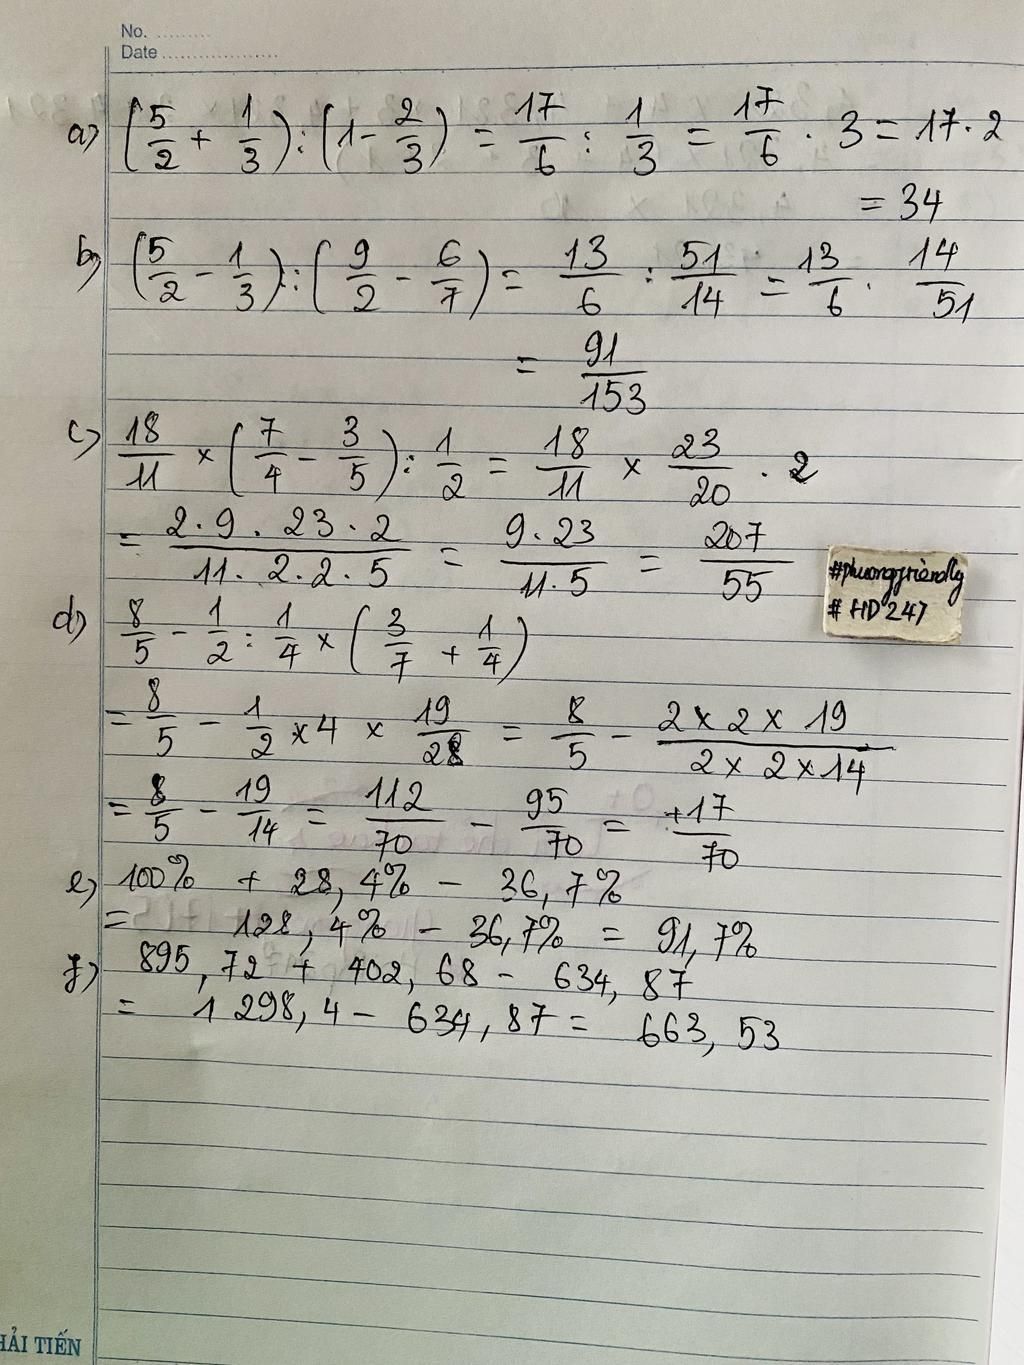 No. .........
Date ....................
a) (5/2 + 1/3) : (1 - 2/3) = 17/6 : 1/3 = 17/6 . 3 = 17.2
= 34
b) (5/2 - 1/3) : (9/2 - 6/7) = 13/6 : 51/14 = 13/6 . 14/51
= 91/153
c) 18/11 × (7/4 - 3/5) : 1/2 = 18/11 × 23/20 . 2
= 2.9.23.2/11.2.2.5 = 9.23/11.5 = 207/55
#phuongfriendly
# HD247
d) 8/5 - 1/2 : 1/4 × (3/7 + 1/4)
= 8/5 - 1/2 × 4 × 19/28 = 8/5 - 2 × 2 × 19/2 × 2 × 14
= 8/5 - 19/14 = 112/70 - 95/70 = +17/70
e) 100% + 28,4% - 36,7%
= 128,4% - 36,7% = 91,7%
f) 895,72 + 402,68 - 634,87
= 1 298,4 - 634,87 = 663,53
HẢI TIẾN